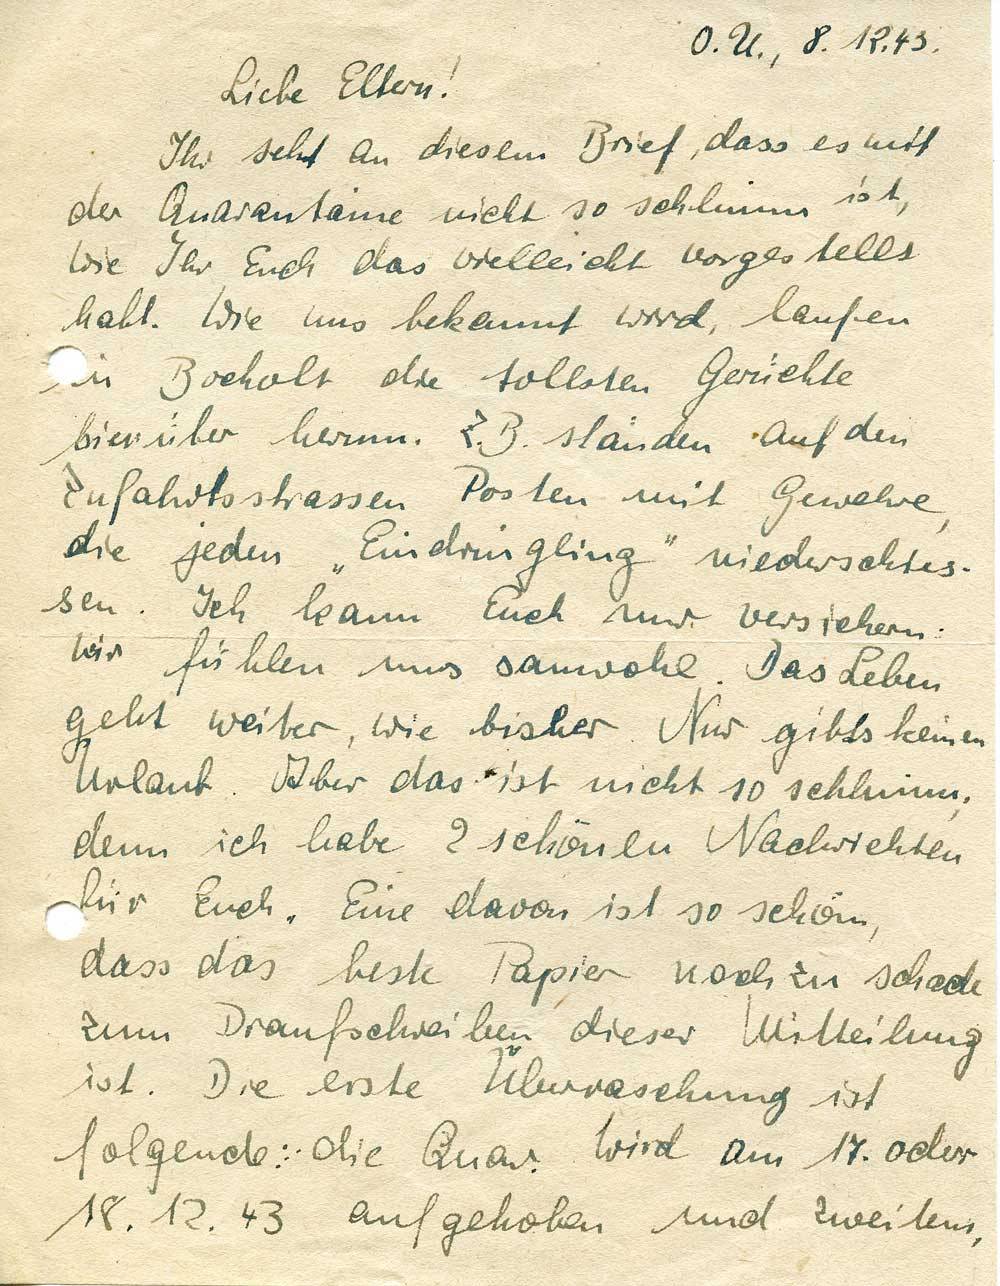 O.U., 8. 12.43.
Liebe Eltern!
Ihr seht an diesem Brief, dass es mit
der Quarantäne nicht so schlimm ist,
wie Ihr Euch das vielleicht vorgestellt
habt. Wie uns bekannt wird, laufen
in Bocholt die tollsten Gerüchte
hierüber herum. Z.B. ständen auf den
Zufahrtsstrassen Posten mit Gewehre,
die jeden „Eindringling" niederschies-
sen. Ich kann Euch nur versichern:
wir fühlen uns sauwohl. Das Leben
geht weiter, wie bisher. Nur gibts keinen
Urlaub. Aber das ist nicht so schlimm,
denn ich habe 2 schönen Nachrichten
für Euch. Eine davon ist so schön,
dass das beste Papier noch zu schade
zum Draufschreiben dieser Mitteilung
ist. Die erste Überraschung ist
folgende: die Quar. wird am 17. oder
18.12.43 aufgehoben und zweitens,